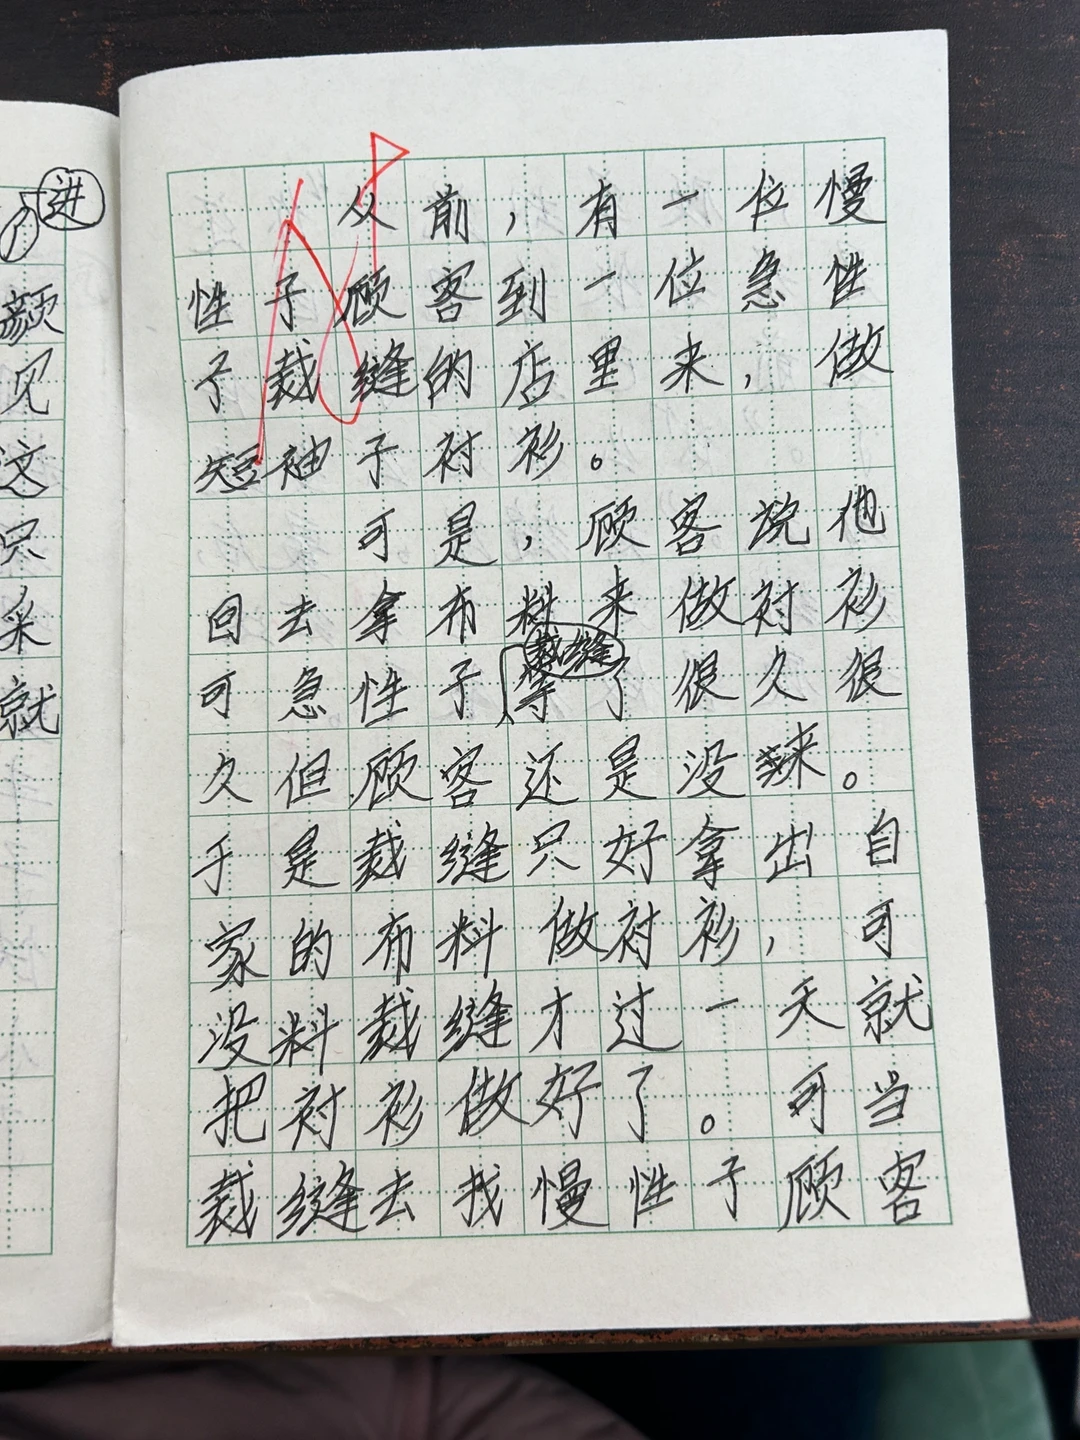 进
颜
见
这
只
采
就
从前，有一位慢
性子顾客到一位急性
子裁缝的店里来，做
短袖子衬衫。
可是，顾客说他
回去拿布料来做衬衫
裁缝
可急性子等了很久很
久但顾客还是没来。
于是裁缝只好拿出自
家的布料做衬衫，可
没料裁缝才过一天就
把衬衫做好了。可当
裁缝去找慢性子顾客